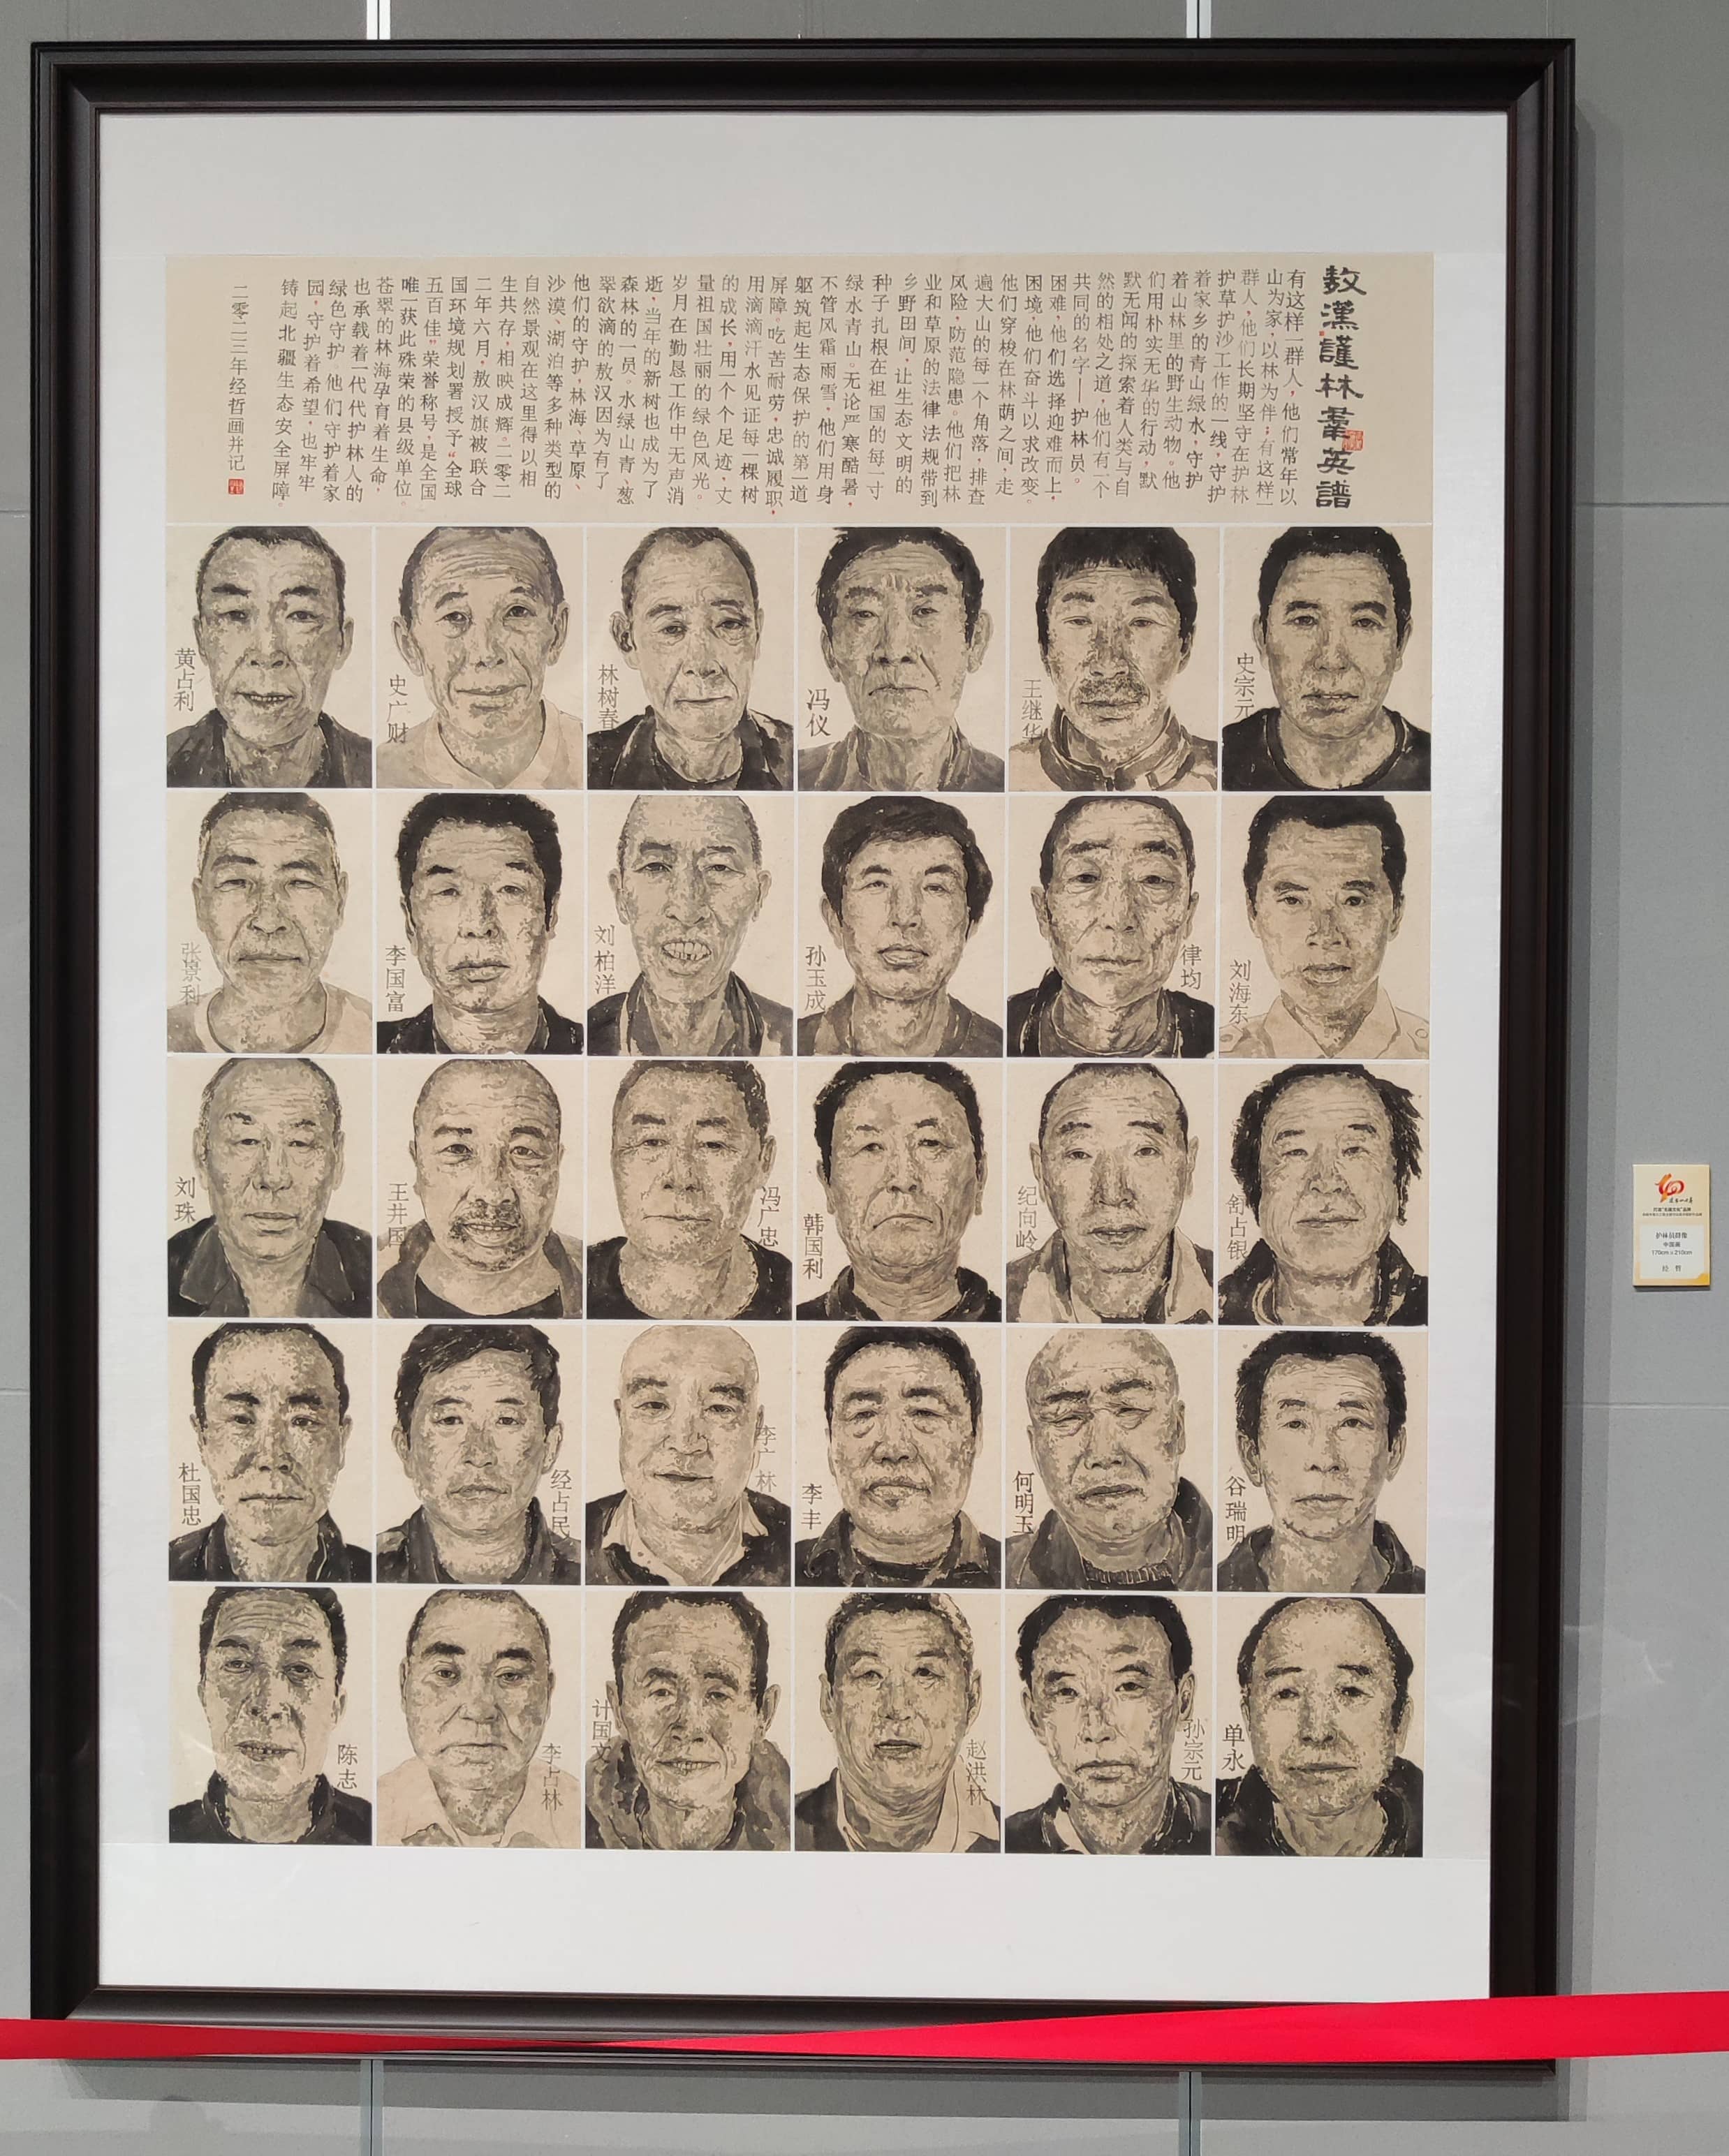 敖漢護林羣英譜
有这样一群人，他们常年以
山为家，以林为伴；有这样一
群人，他们长期坚守在护林
护草护沙工作的一线，守护
着家乡的青山绿水，守护
着山林里的野生动物。他
们用朴实无华的行动，默
默无闻的探索着人类与自
然的相处之道，他们有一个
共同的名字——护林员。
困难，他们选择迎难而上，
困境，他们奋斗以求改变。
他们穿梭在林荫之间，走
遍大山的每一个角落，排查
风险，防范隐患。他们把林
业和草原的法律法规带到
乡野田间，让生态文明的
种子扎根在祖国的每一寸
绿水青山。无论严寒酷暑，
不管风霜雨雪，他们用身
躯筑起生态保护的第一道
屏障。吃苦耐劳，忠诚履职，
用滴滴汗水见证每一棵树
的成长，用一个个足迹，丈
量祖国壮丽的绿色风光。
岁月在勤恳工作中无声消
逝，当年的新树也成为了
森林的一员。水绿山青、葱
翠欲滴的敖汉因为有了
他们的守护，林海、草原、
沙漠、湖泊等多种类型的
自然景观在这里得以相
生共存，相映成辉。二零二
二年六月，敖汉旗被联合
国环境规划署授予“全球
五百佳”荣誉称号，是全国
唯一获此殊荣的县级单位。
苍翠的林海孕育着生命，
也承载着一代代护林人的
绿色守护。他们守护着家
园，守护着希望，也牢牢
铸起北疆生态安全屏障。
二零二三年经哲画并记
黄占利
史广财
林树春
冯仪
王继华
史宗元
张景利
李国富
刘柏洋
孙玉成
律均
刘海东
刘珠
王井国
冯广忠
韩国利
纪向岭
舒占银
杜国忠
经占民
李广林
李丰
何明玉
谷瑞明
陈志
李占林
计国文
赵洪林
孙宗元
单永
护林员群像
中国画
170cm x 210cm
经 哲